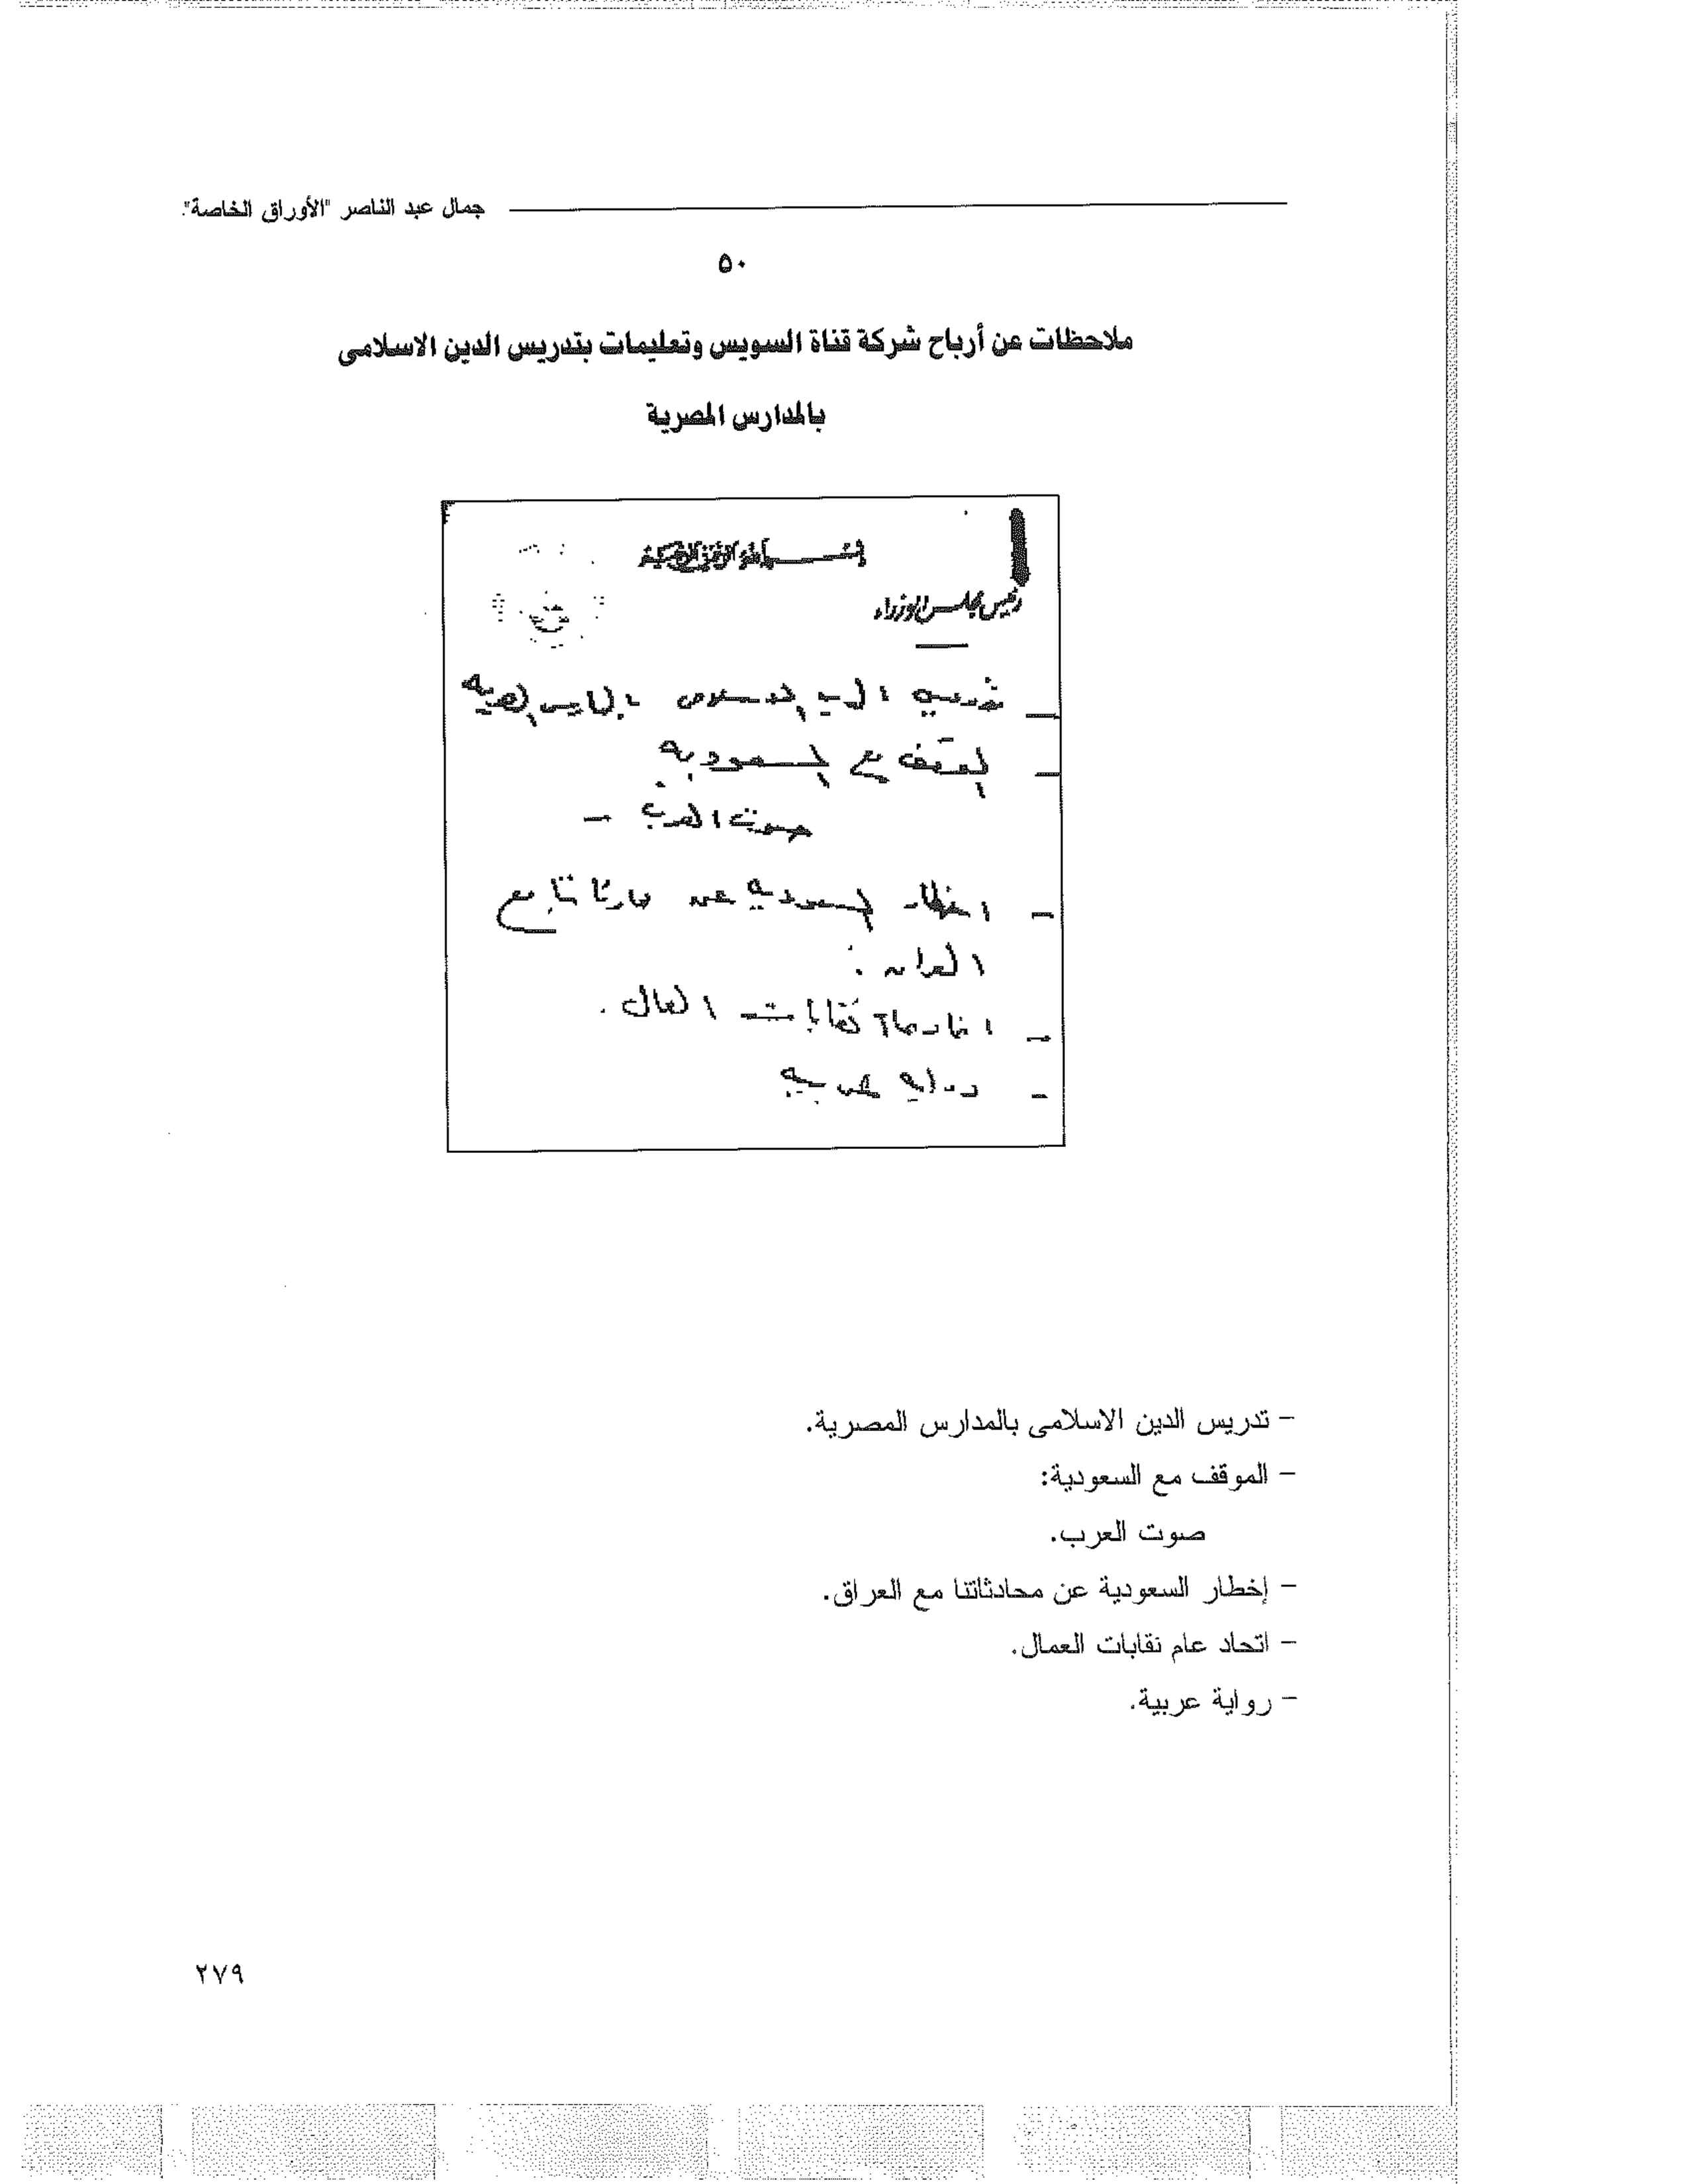 جمال عبد الناصر "الأوراق الخاصة".
٥٠
ملاحظات عن أرباح شركة قناة السويس وتعليمات بتدريس الدين الاسلامى
بالمدارس المصرية
رئيس مجلس الوزراء
— تدريس الدين الاسلامى بالمدارس المصريه
— الموقف مع السعوديه :
صوت العرب —
— اخطار السعوديه عن محادثاتنا مع
العراق .
— اتحاد عام نقابات العمال .
— روايه عربيه
– تدريس الدين الاسلامى بالمدارس المصرية.
– الموقف مع السعودية:
صوت العرب.
– إخطار السعودية عن محادثاتنا مع العراق.
– اتحاد عام نقابات العمال.
– رواية عربية.
٢٧٩